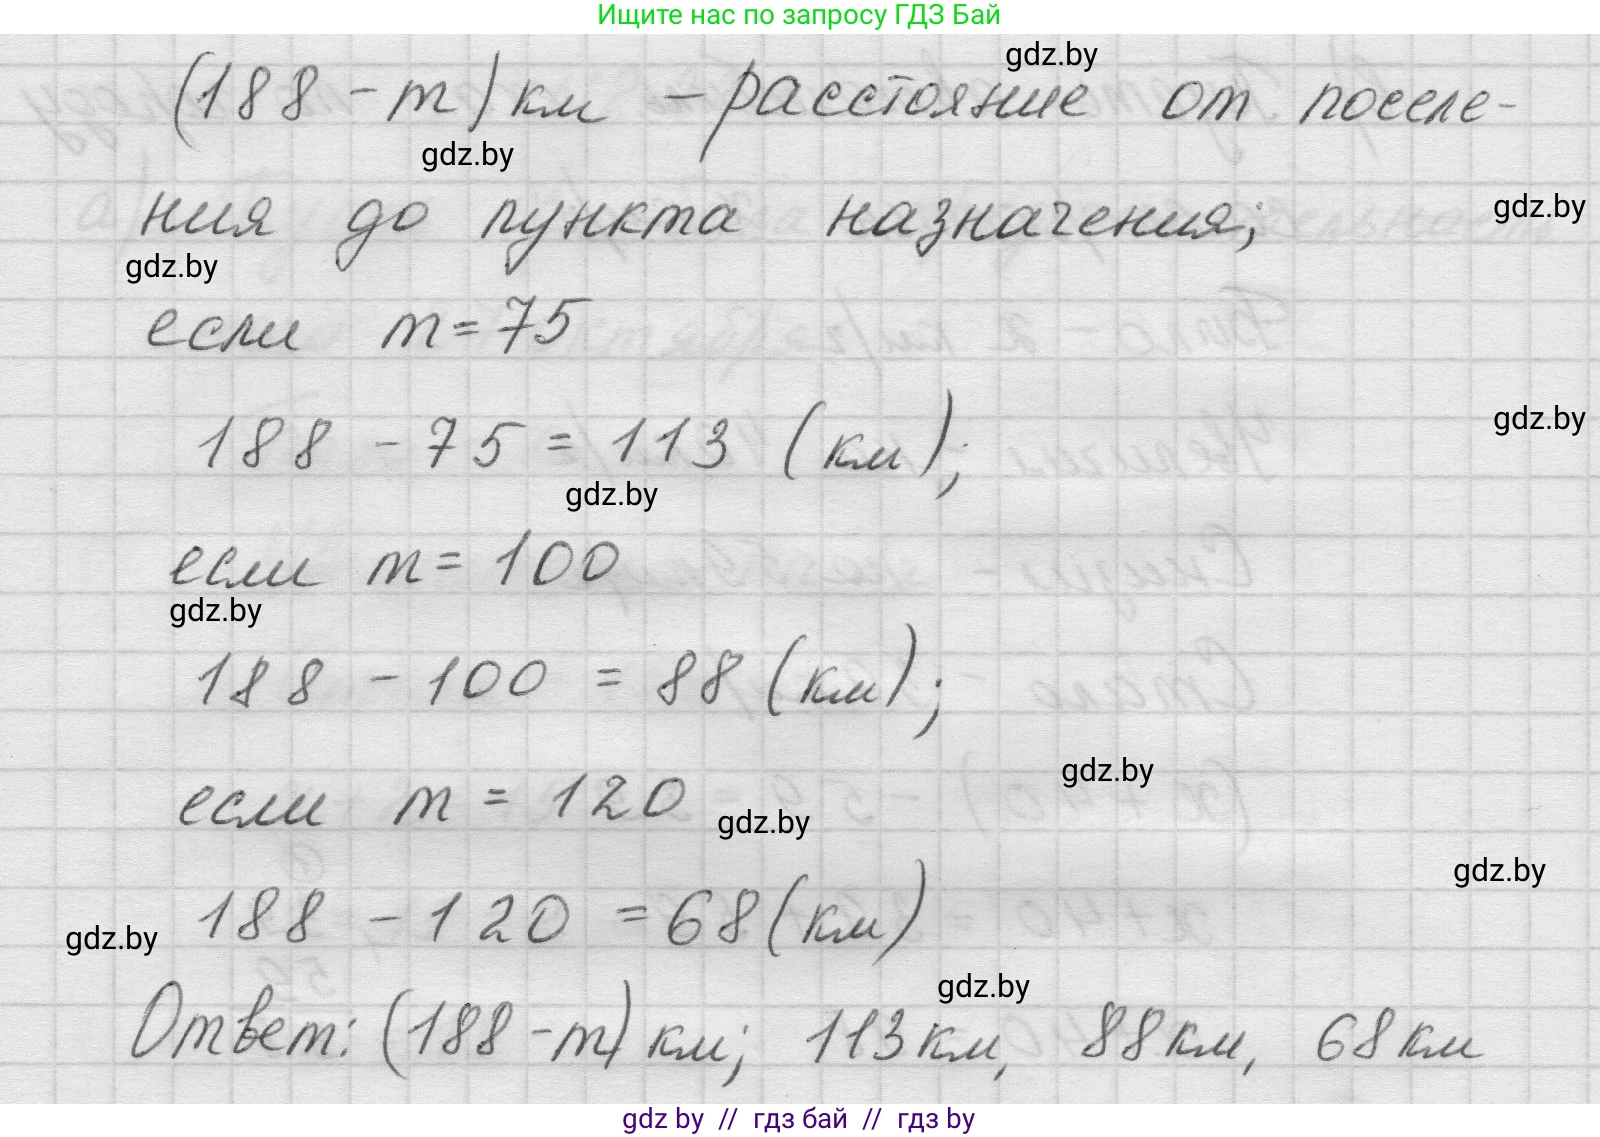 Ищите нас по запросу ГДЗ Бай
gdz.by
(188 - m) км - расстояние от поселе-
gdz.by
ния до пункта назначения;
gdz.by
gdz.by
если m = 75
gdz.by
188 - 75 = 113 (км);
gdz.by
если m = 100
gdz.by
188 - 100 = 88 (км);
gdz.by
если m = 120
gdz.by
gdz.by
188 - 120 = 68 (км)
gdz.by
gdz.by
Ответ: (188 - m) км; 113 км, 88 км, 68 км
gdz by // гдз бай // гдз by